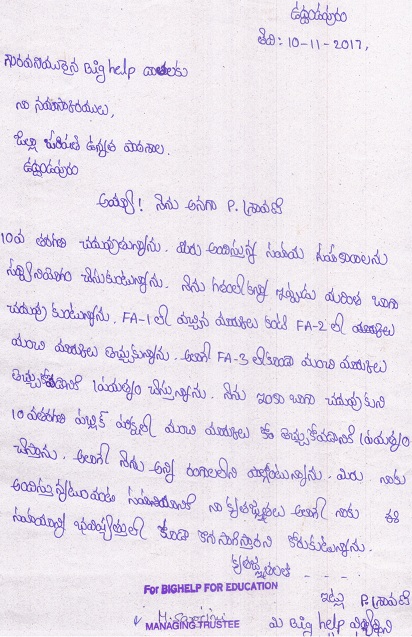 ఉద్దండపురం
తేది: 10-11-2017,
గౌరవనీయులైన Big help వారికు
నా నమస్కారములు,
జిల్లా పరిషత్ ఉన్నత పాఠశాల.
ఉద్దండపురం
అయ్యా! నేను అనగా P. శ్రావణి
10వ తరగతి చదువుతున్నాను. మీరు అందిస్తున్న సహాయ సహకారాలను
సద్వినియోగం చేసుకుంటున్నాను. నేను గతంలోకన్నా ఇప్పుడు మరింత బాగా
చదువు కుంటున్నాను. FA-1 లో వచ్చిన మార్కులు కంటే FA-2 లో మార్కులు
మంచి మార్కులు తెచ్చుకున్నాను. అలాగే FA-3 లోకూడా మంచి మార్కులు
తెచ్చుకోవడానికి ప్రయత్నం చేస్తున్నాను. నేను ఇంకా బాగా చదువుకుని
10వతరగతి పబ్లిక్ పరీక్షలో మంచి మార్కులు తెచ్చుకోవడానికి ప్రయత్నం
చేస్తాను. అలాగే నేను అన్ని రంగాలలోని పాల్గొంటున్నాను. మీరు నాకు
అందిస్తున్నటువంటి సహాయానికి నా కృతజ్ఞతలు అలాగే నాకు ఈ
సహాయాన్ని భవిష్యత్తులో కూడా కొనసాగిస్తారని కోరుకుంటున్నాను.
కృతజ్ఞతలతో - - - .
ఇట్లు P. శ్రావణి
మీ Big help విద్యార్థిని
For BIGHELP FOR EDUCATION
MANAGING TRUSTEE